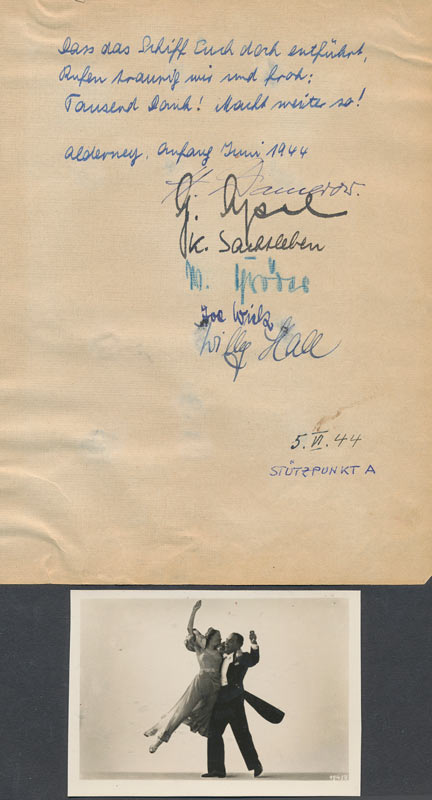 Dass das Schiff Euch doch entführt,
Rufen traurig wir und froh:
Tausend Dank! Macht weiter so!
Alderney, Anfang Juni 1944
K. Sachsleben
W.
Willy Hall
5.VI.44
STÜTZPUNKT A